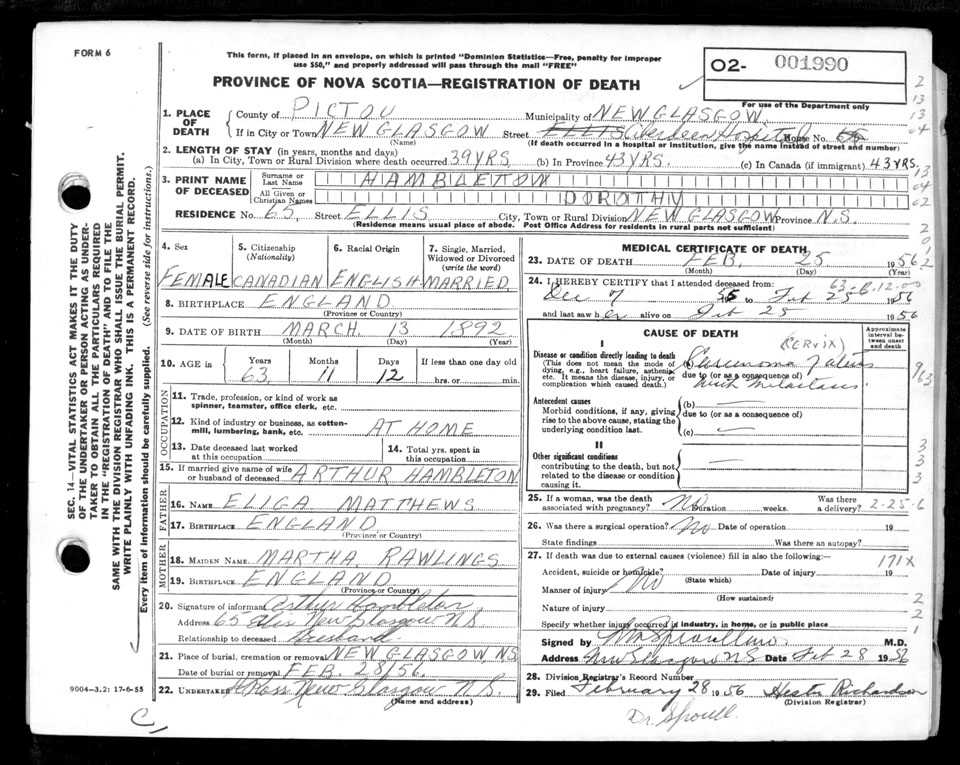 FORM 6
This form, if placed in an envelope, on which is printed "Dominion Statistics—Free, penalty for improper
use $50," and properly addressed will pass through the mail "FREE"
PROVINCE OF NOVA SCOTIA—REGISTRATION OF DEATH
02- 001990
For use of the Department only
1. PLACE OF DEATH
County of PICTOU Municipality of NEW GLASGOW.
If in City or Town NEW GLASGOW Street ELLIS Aberdeen Hospital House No. 65
(Name) (If death occurred in a hospital or institution, give the name instead of street and number)
2. LENGTH OF STAY (in years, months and days)
(a) In City, Town or Rural Division where death occurred 39 YRS. (b) In Province 43 YRS. (c) In Canada (if immigrant) 43 YRS.
3. PRINT NAME OF DECEASED
Surname or Last Name HAMBLETON
All Given or Christian Names DOROTHY
RESIDENCE No. 65. Street ELLIS City, Town or Rural Division NEW GLASGOW Province N.S.
(Residence means usual place of abode. Post Office Address for residents in rural parts not sufficient)
4. Sex 5. Citizenship (Nationality) 6. Racial Origin 7. Single, Married, Widowed or Divorced (write the word)
FEMALE CANADIAN ENGLISH MARRIED.
8. BIRTHPLACE ENGLAND
(Province or Country)
9. DATE OF BIRTH MARCH. 13 1892
(Month) (Day) (Year)
10. AGE in Years Months Days If less than one day old
63. 11 12 hrs. or min.
OCCUPATION
11. Trade, profession, or kind of work as spinner, teamster, office clerk, etc.
12. Kind of industry or business, as cotton-mill, lumbering, bank, etc. AT HOME
13. Date deceased last worked at this occupation 14. Total yrs. spent in this occupation
15. If married give name of wife or husband of deceased ARTHUR HAMBLETON
FATHER
16. NAME ELIGA MATTHEWS
17. BIRTHPLACE ENGLAND
(Province or Country)
MOTHER
18. MAIDEN NAME MARTHA RAWLINGS
19. BIRTHPLACE ENGLAND
(Province or Country)
20. Signature of informant Arthur Hambleton
Address 65 Elis New Glasgow N.S.
Relationship to deceased Husband
21. Place of burial, cremation or removal NEW GLASGOW, N.S.
Date of burial or removal FEB. 28/56.
22. UNDERTAKER Ross New Glasgow N.S.
(Name and address)
9004—3.2: 17-6-55
SEC. 14—VITAL STATISTICS ACT MAKES IT THE DUTY
OF THE UNDERTAKER OR PERSON ACTING AS UNDER-
TAKER TO OBTAIN ALL THE PARTICULARS REQUIRED
IN THE "REGISTRATION OF DEATH" AND TO FILE THE
SAME WITH THE DIVISION REGISTRAR WHO SHALL ISSUE THE BURIAL PERMIT.
WRITE PLAINLY WITH UNFADING INK. THIS IS A PERMANENT RECORD.
Every item of information should be carefully supplied. (See reverse side for instructions.)
MEDICAL CERTIFICATE OF DEATH
23. DATE OF DEATH FEB. 25 1956
(Month) (Day) (Year)
24. I HEREBY CERTIFY that I attended deceased from:
Dec 7 55 to Feb 25 1956
and last saw her alive on Feb 25 1956
CAUSE OF DEATH
Approximate interval between onset and death
I
Disease or condition directly leading to death
(This does not mean the mode of dying, e.g., heart failure, asthenia, etc. It means the disease, injury, or complication which caused death.)
(CERVIX)
Carcinoma Uterus
due to (or as a consequence of)
Antecedent causes
Morbid conditions, if any, giving rise to the above cause, stating the underlying condition last.
(b)
due to (or as a consequence of)
(c)
II
Other significant conditions
contributing to the death, but not related to the disease or condition causing it.
25. If a woman, was the death associated with pregnancy? No Duration weeks. Was there a delivery?
2-25-6
26. Was there a surgical operation? No Date of operation 19
State findings Was there an autopsy?
27. If death was due to external causes (violence) fill in also the following:—
171X
Accident, suicide or homicide? Date of injury 19
(State which)
Manner of injury No
(How sustained)
Nature of injury
Specify whether injury occurred in industry, in home, or in public place
Signed by M.D.
Address New Glasgow NS Date Feb 28 1956
28. Division Registrar's Record Number
29. Filed February 28 1956 Hester Richardson
(Division Registrar)
Dr. Sproull.
C